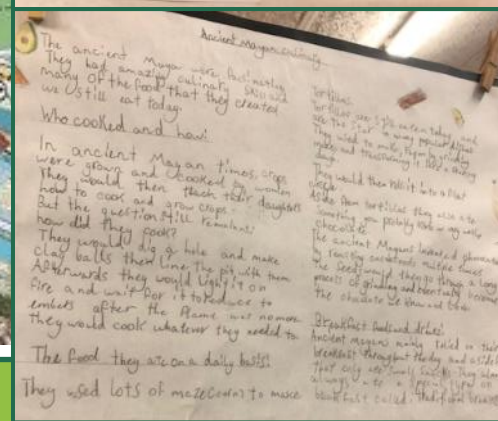 Ancient mayan culinary
The ancient Maya were fascinating
They had amazing culinary skills and
many of the food that they created
we still eat today.
Who cooked and how:
In ancient Mayan times, crops
were grown and cooked by women
They would then thach their daughters
how to cook and grow crops.
But the question still remains:
how did they cook?
They would dig a hole and make
clay balls then line the pit with them
Afterwards they would light it on
fire and wait for it to reduce to
embers after the flame was no more
they would cook whatever they needed to
The food they ate on a daily basis:
They used lots of maze(corn) to make
tortillas.
Tortillas are still eaten today, and
are the star in many popular dishes
They used to make them by grinding
maize and transforming it into a
dough
They would then roll it into a flat
circle.
Aside from tortillas they also ate
something you probably know very well:
chocolate
The ancient Mayans invented
by roasting multiple times
the seeds would then go through a long
process of grinding and
the chocolate we know and love.
Breakfast foods and drinks:
Ancient mayans mainly in their
breakfast throughout the day and aside
that only ate small snacks. They
always a special type of
breakfast called: traditional